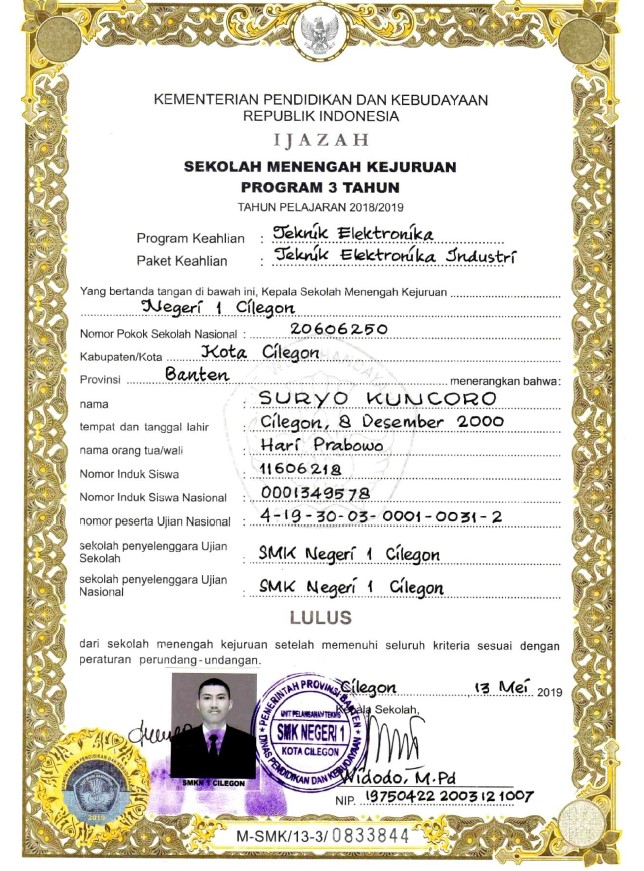 KEMENTERIAN PENDIDIKAN DAN KEBUDAYAAN
REPUBLIK INDONESIA
IJAZAH
SEKOLAH MENENGAH KEJURUAN
PROGRAM 3 TAHUN
TAHUN PELAJARAN 2018/2019
Program Keahlian : Teknik Elektronika
Paket Keahlian : Teknik Elektronika Industri
Yang bertanda tangan di bawah ini, Kepala Sekolah Menengah Kejuruan
Negeri 1 Cilegon
Nomor Pokok Sekolah Nasional : 20606250
Kabupaten/Kota Kota Cilegon
Provinsi Banten menerangkan bahwa:
nama : SURYO KUNCORO
tempat dan tanggal lahir : Cilegon, 8 Desember 2000
nama orang tua/wali : Hari Prabowo
Nomor Induk Siswa : 11606218
Nomor Induk Siswa Nasional : 0001349578
nomor peserta Ujian Nasional : 4-19-30-03-0001-0031-2
sekolah penyelenggara Ujian
Sekolah : SMK Negeri 1 Cilegon
sekolah penyelenggara Ujian
Nasional : SMK Negeri 1 Cilegon
LULUS
dari sekolah menengah kejuruan setelah memenuhi seluruh kriteria sesuai dengan
peraturan perundang-undangan.
Cilegon, 13 Mei 2019
Kepala Sekolah,
PEMERINTAH PROVINSI BANTEN
UNIT PELAKSANAAN TEKNIS
SMK NEGERI 1
KOTA CILEGON
DINAS PENDIDIKAN DAN KEBUDAYAAN
SMKN 1 CILEGON
Widodo, M.Pd
NIP. 19750422 200312 1007
2019
M-SMK/13-3/0833844